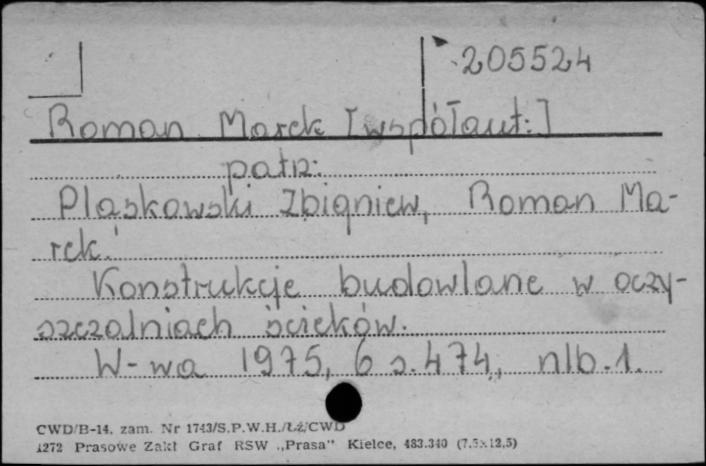 205524
Roman Marek [współaut:]
patrz:
Pląskowski Zbigniew, Roman Ma-
rek:
Konstrukcje budowlane w oczy-
szczalniach ścieków.
W-wa 1975, 6 s. 474, nlb. 1.
CWD/B-14. zam. Nr 1743/S.P.W.H./Łż/CWD
1272 Prasowe Zakł Graf RSW „Prasa" Kielce, 483.340 (7.5×12,5)